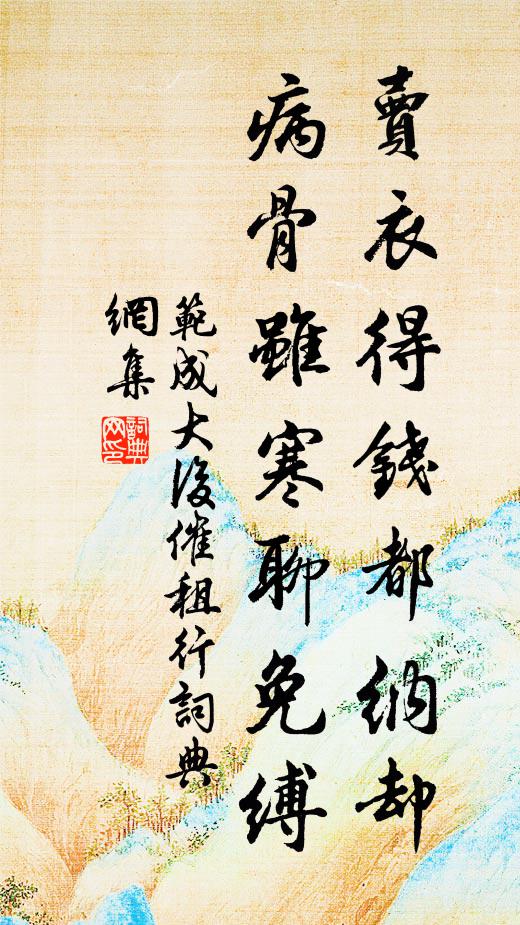 賣衣得錢都納却
病骨雖寒聊免縛
範成大後催租行詞典
網集
詞典
网印